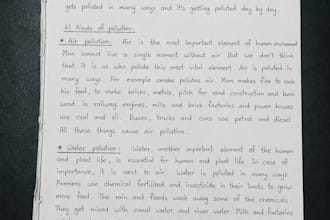 gets polluted in many ways and it's getting polluted day by day.
b) Kinds of pollution:
* Air pollution: Air is the most important element of human environment
Man cannot live a single moment without air. But we don't think
that it is us who pollute this most vital element. Air is polluted in
many ways. For example smoke pollutes air. Man makes fire to cook
his food, to make bricks, metals, pitch for road construction and burn
wood. In railway engines, mills and brick factories and power houses
use coal and oil. Buses, trucks and cars use petrol and diesel.
All these things cause air pollution.
* Water pollution: Water, another important element of the human
and plant life, is essential for human and plant life. In case of
importance, it is next to air. Water is polluted in many ways.
Farmers use chemical fertilizers and insecticide in their lands to grow
more food. The rain and floods wash away some of the chemicals.
They get mixed with canal water and river water. Mills and factories